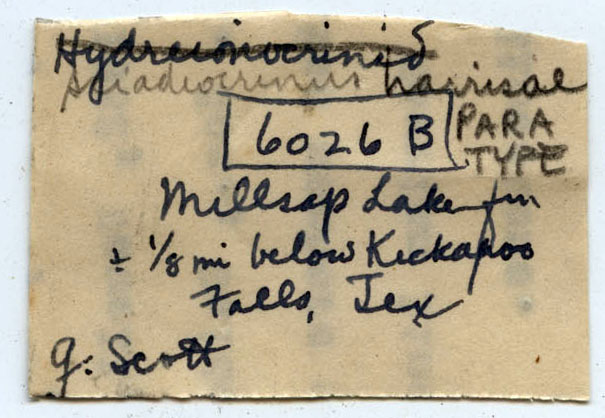 Hydreionocrinid
Sciadiocrinus harrisae
6026 B PARA
TYPE
Millsap Lake fm
± 1/8 mi below Kickapoo
Falls, Tex
G. Scott